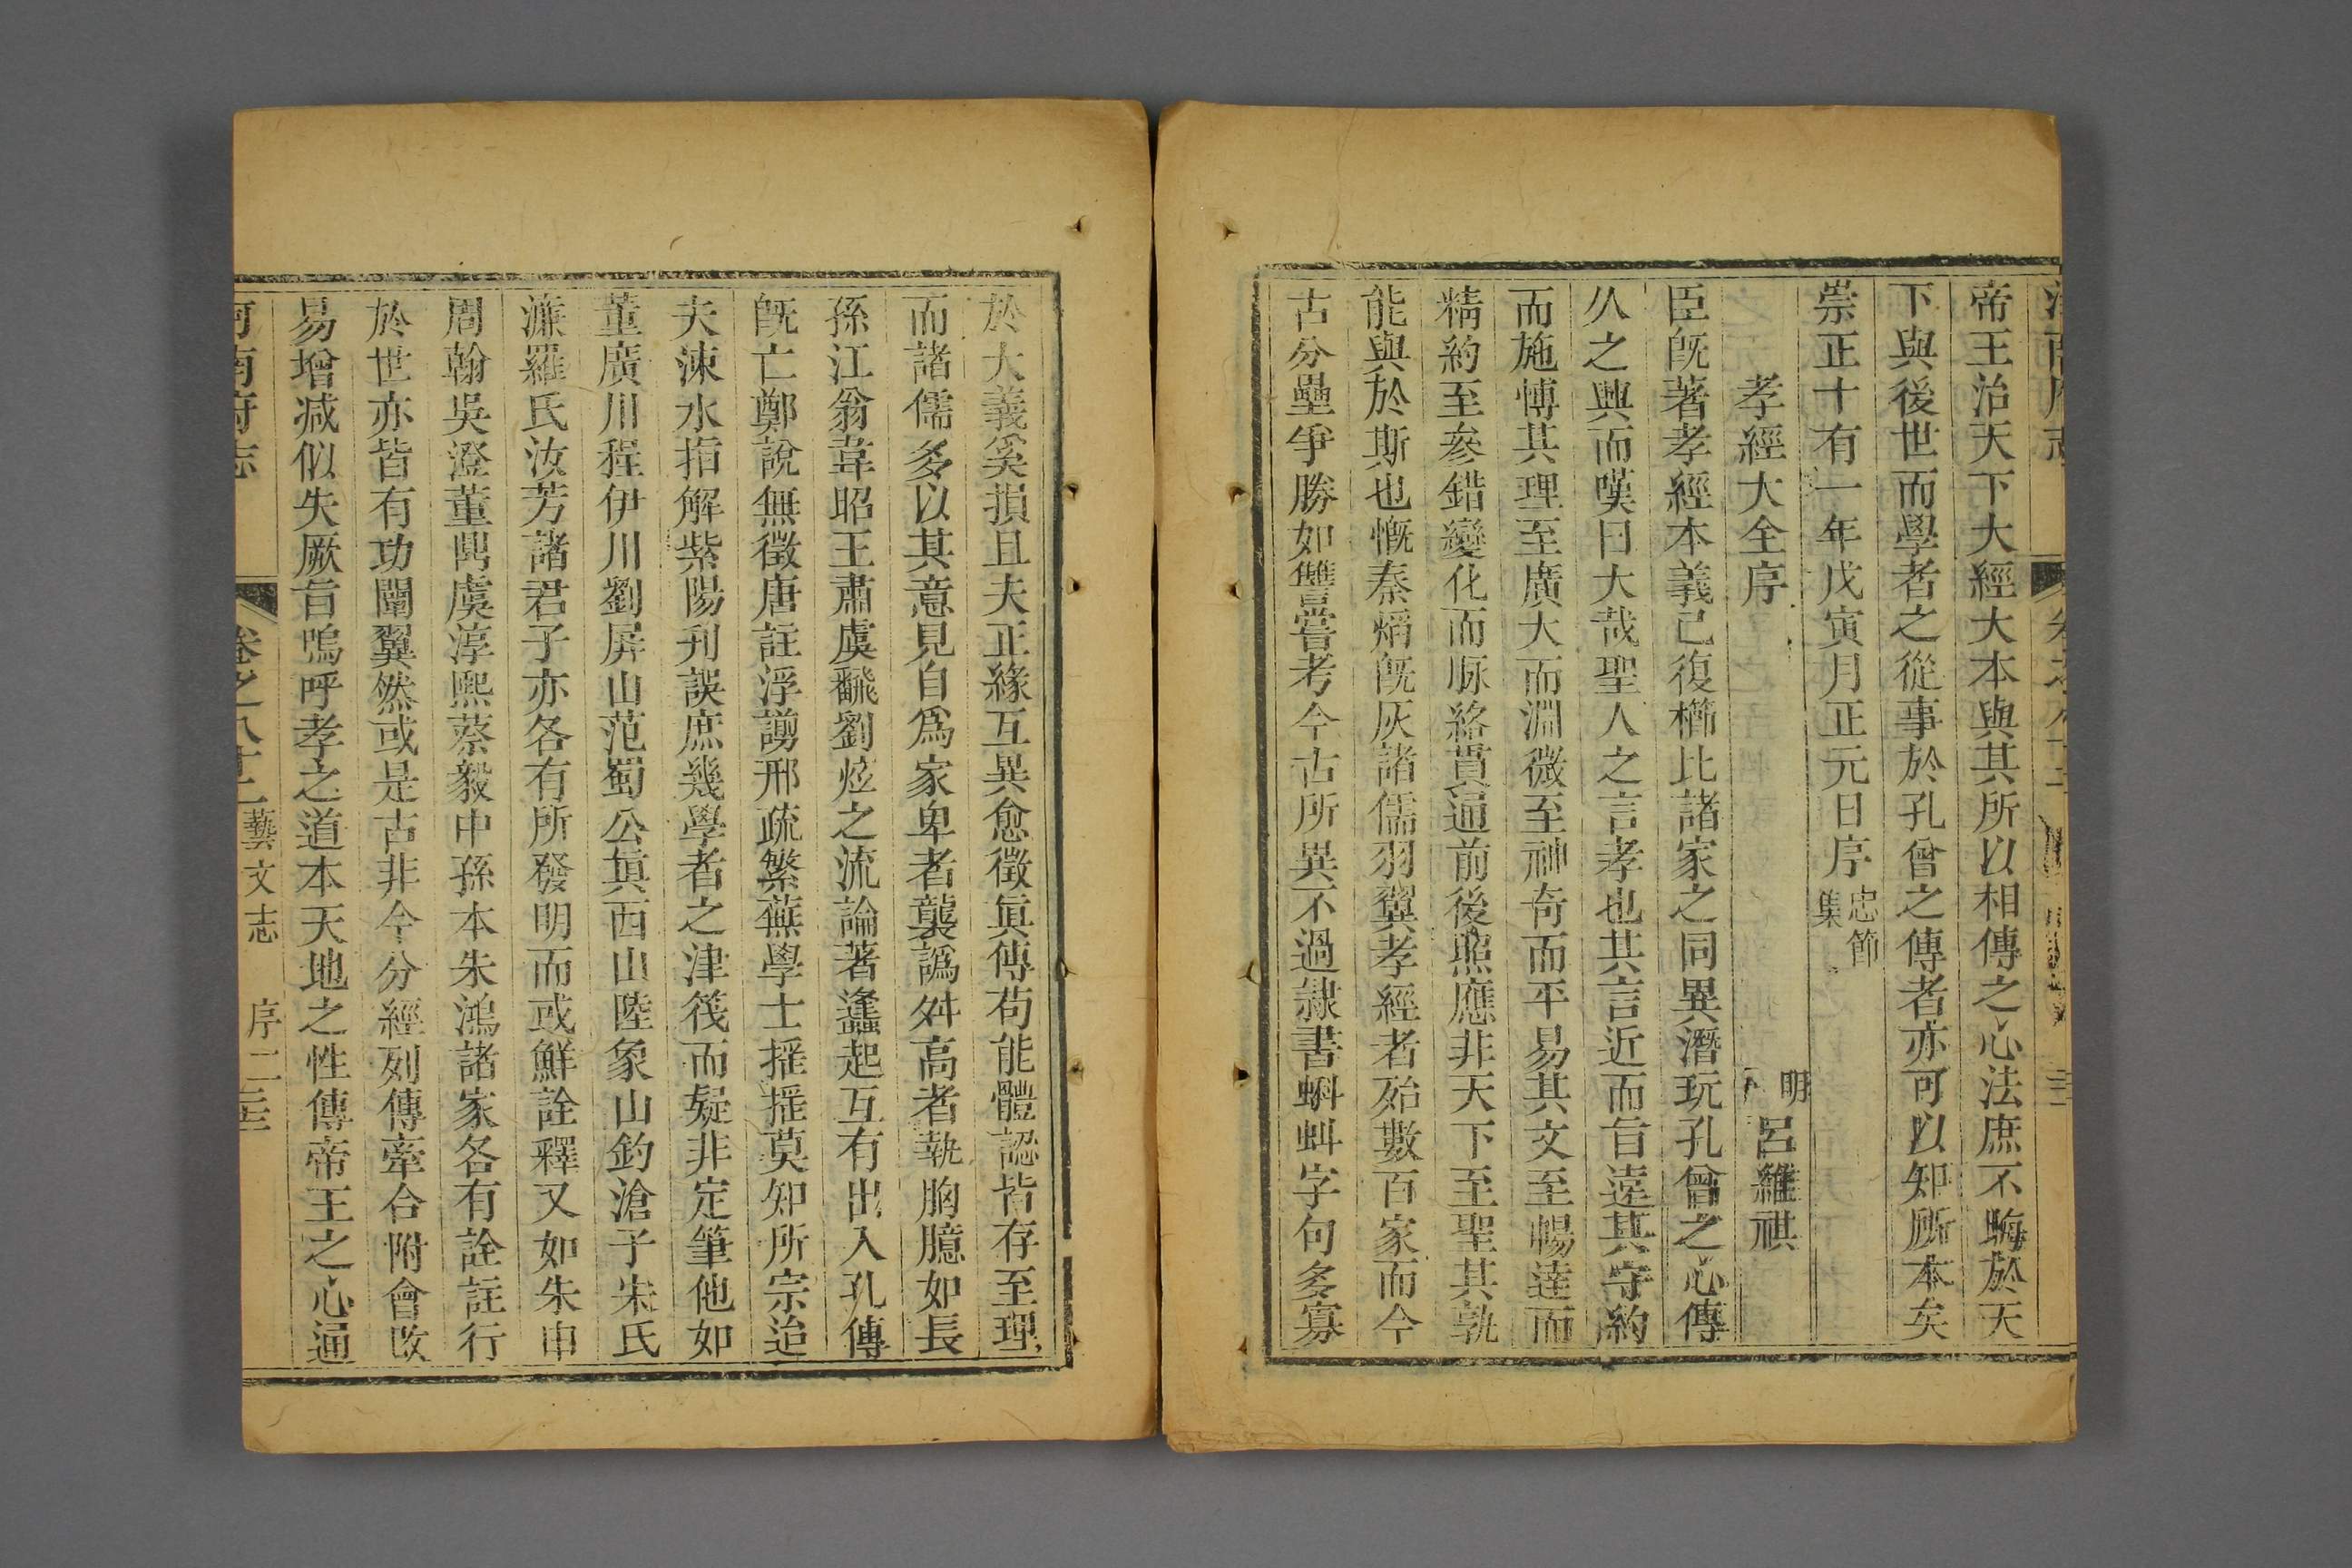 帝王治天下大經大本與其所以相傳之心法庶不晦於天
下與後世而學者之從事於孔曾之傳者亦可以知所本矣
崇正十有一年戊寅月正元日序忠節集
孝經大全序
明 呂維祺
臣旣著孝經本義已復櫛比諸家之同異潛玩孔曾之心傳
久之興而嘆曰大哉聖人之言孝也其言近而旨遠其守約
而施博其理至廣大而淵微至神奇而平易其文至暢達而
精約至參錯變化而脉絡貫通前後照應非天下至聖其孰
能與於斯也慨秦焰旣灰諸儒羽翼孝經者殆數百家而今
古分壘爭勝如讐嘗考今古所異不過隷書蝌蚪字句多寡
於大義奚損且夫正緣互異愈徵眞傳苟能體認皆存至理
而諸儒多以其意見自爲家卑者襲譌舛高者執胸臆如長
孫江翁韋昭王肅虞翻劉炫之流論著蠭起互有出入孔傳
旣亡鄭說無徵唐註浮謭邢疏繁蕪學士搖搖莫知所宗迨
夫涑水指解紫陽刋誤庶幾學者之津筏而疑非定筆他如
董廣川程伊川劉屏山范蜀公眞西山陸象山釣滄子宋氏
濂羅氏汝芳諸君子亦各有所發明而或鮮詮釋又如朱申
周翰吳澄董鼎虞淳熙蔡毅中孫本朱鴻諸家各有詮註行
於世亦皆有功闡翼然或是古非今分經列傳牽合附會改
易增减似失厥旨嗚呼孝之道本天地之性傳帝王之心通
河南府志 卷之八十二 藝文志 序二